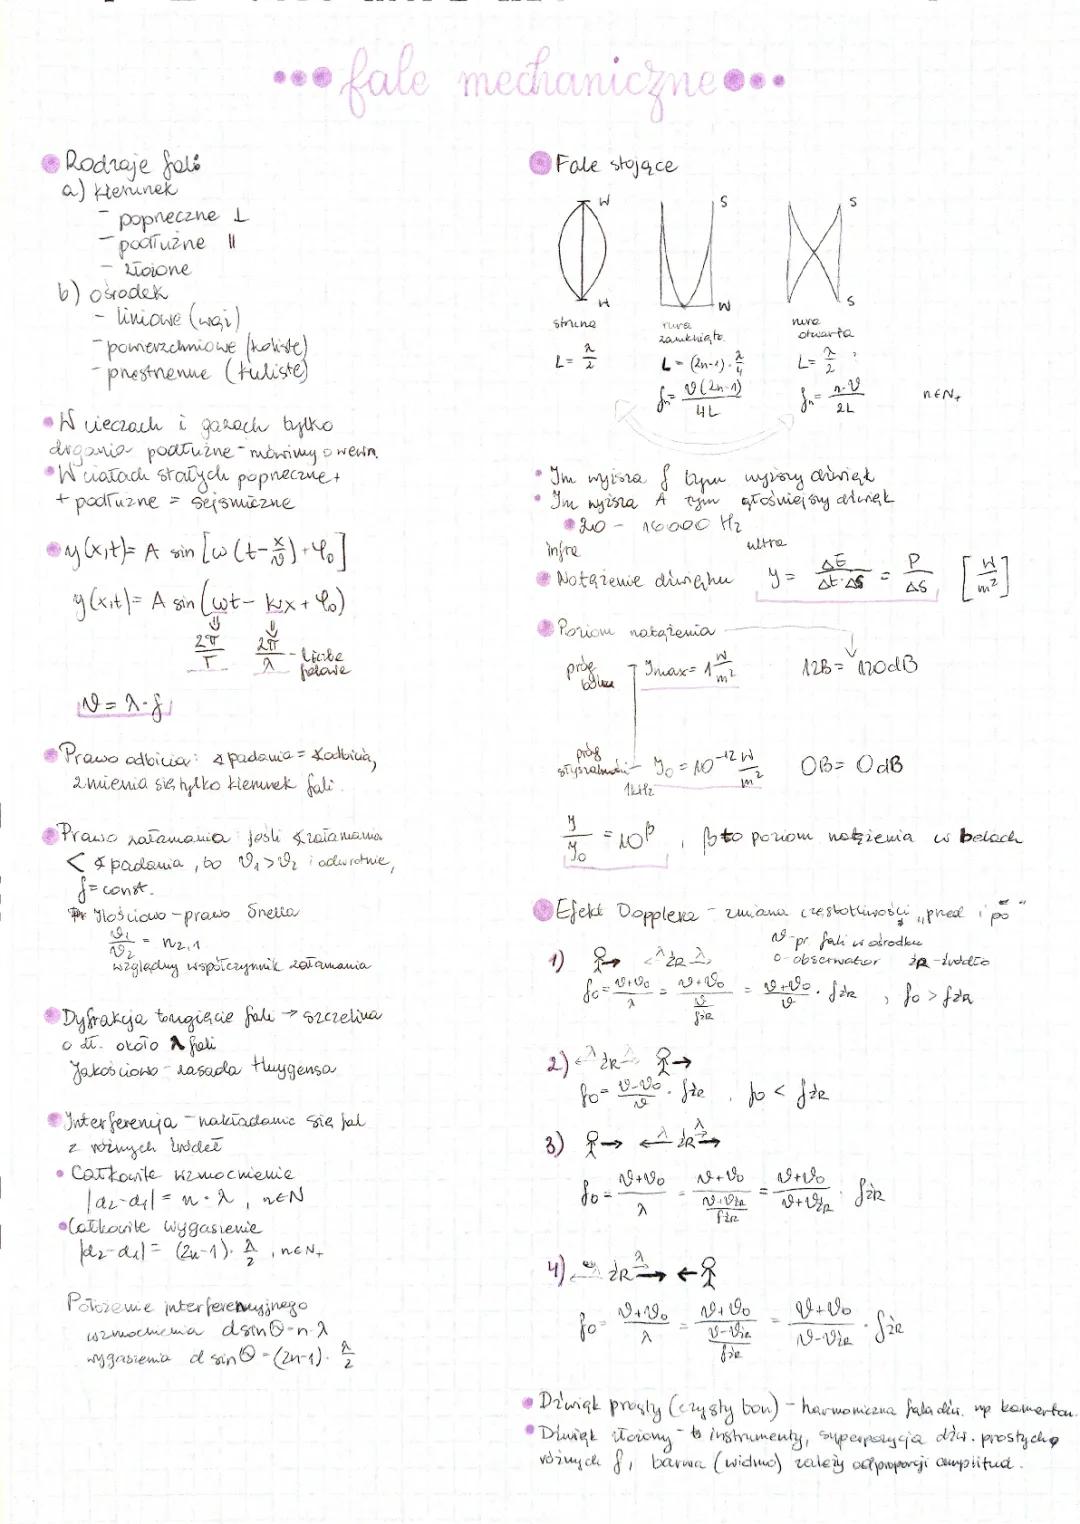 fale mechaniczne
Rodzaje fal:
a) kierunek
- poprzeczne ⊥
- podłużne ||
- złożone
b) ośrodek
- liniowe (wąż)
- powierzchniowe (koliste)
- przestrzenne (kuliste)
W cieczach i gazach tylko
drgania podłużne - mówimy o wewn.
W ciałach stałych poprzeczne +
+ podłużne = sejsmiczne
y(x,t) = A sin [ω(t - x/v) + φ₀]
y(x,t) = A sin (ωt - kx + φ₀)
⇓ ⇓
2π/T 2π/λ - liczba
falowa
v = λ·f
Prawo odbicia: ∢ padania = ∢ odbicia,
zmienia się tylko kierunek fali.
Prawo załamania: jeśli ∢ załamania
< ∢ padania, to v₁ > v₂ i odwrotnie,
f = const.
Ilościowo - prawo Snella
v₁/v₂ = n₂,₁
względny współczynnik załamania
Dyfrakcja to ugięcie fali → szczelina
o dł. około λ fali
Jakościowo - zasada Huygensa
Interferencja - nakładanie się fal
z różnych źródeł
Całkowite wzmocnienie
|d₂-d₁| = n·λ, n∈N
Całkowite wygaszenie
|d₂-d₁| = (2n-1)·λ/2, n∈N₊
Położenie interferencyjnego
wzmocnienia d sinΘ = n·λ
wygaszenia d sinΘ = (2n-1)·λ/2
Fale stojące
W S S
W W S
struna rura zamknięta rura otwarta
L = λ/2 L = (2n-1)·λ/4 L = λ/2
fₙ = v(2n-1)/4L fₙ = n·v/2L n∈N₊
Im wyższa f tym wyższy dźwięk
Im wyższa A tym głośniejszy dźwięk
20 - 16000 Hz
infra ultra
Natężenie dźwięku J = ΔE/Δt·ΔS = P/ΔS [W/m²]
Poziom natężenia
próg bólu Jmax = 1 W/m² 12B = 120dB
próg słyszalności J₀ = 10⁻¹² W/m² 0B = 0dB
1kHz
J/J₀ = 10^β, β to poziom natężenia w belach
Efekt Dopplera - zmiana częstotliwości „przed i po"
v - pr. fali w ośrodku
o - obserwator źR - źródło
1) λ źR λ
f₀ = v+v₀/λ = v+v₀/(v/fźR) = v+v₀/v · fźR, f₀ > fźR
2) λ źR
f₀ = v-v₀/v · fźR, f₀ < fźR
3) λ źR λ
f₀ = v+v₀/λ = v+v₀/(v+vźR/fźR) = v+v₀/v+vźR · fźR
4) źR λ
f₀ = v+v₀/λ = v+v₀/(v-vźR/fźR) = v+v₀/v-vźR · fźR
Dźwięk prosty (czysty ton) - harmoniczna fala dźw. np kamerton.
Dźwięk złożony - instrumenty, superpozycja dźw. prostych o
różnych f, barwa (widmo) zależy od proporcji amplitud.